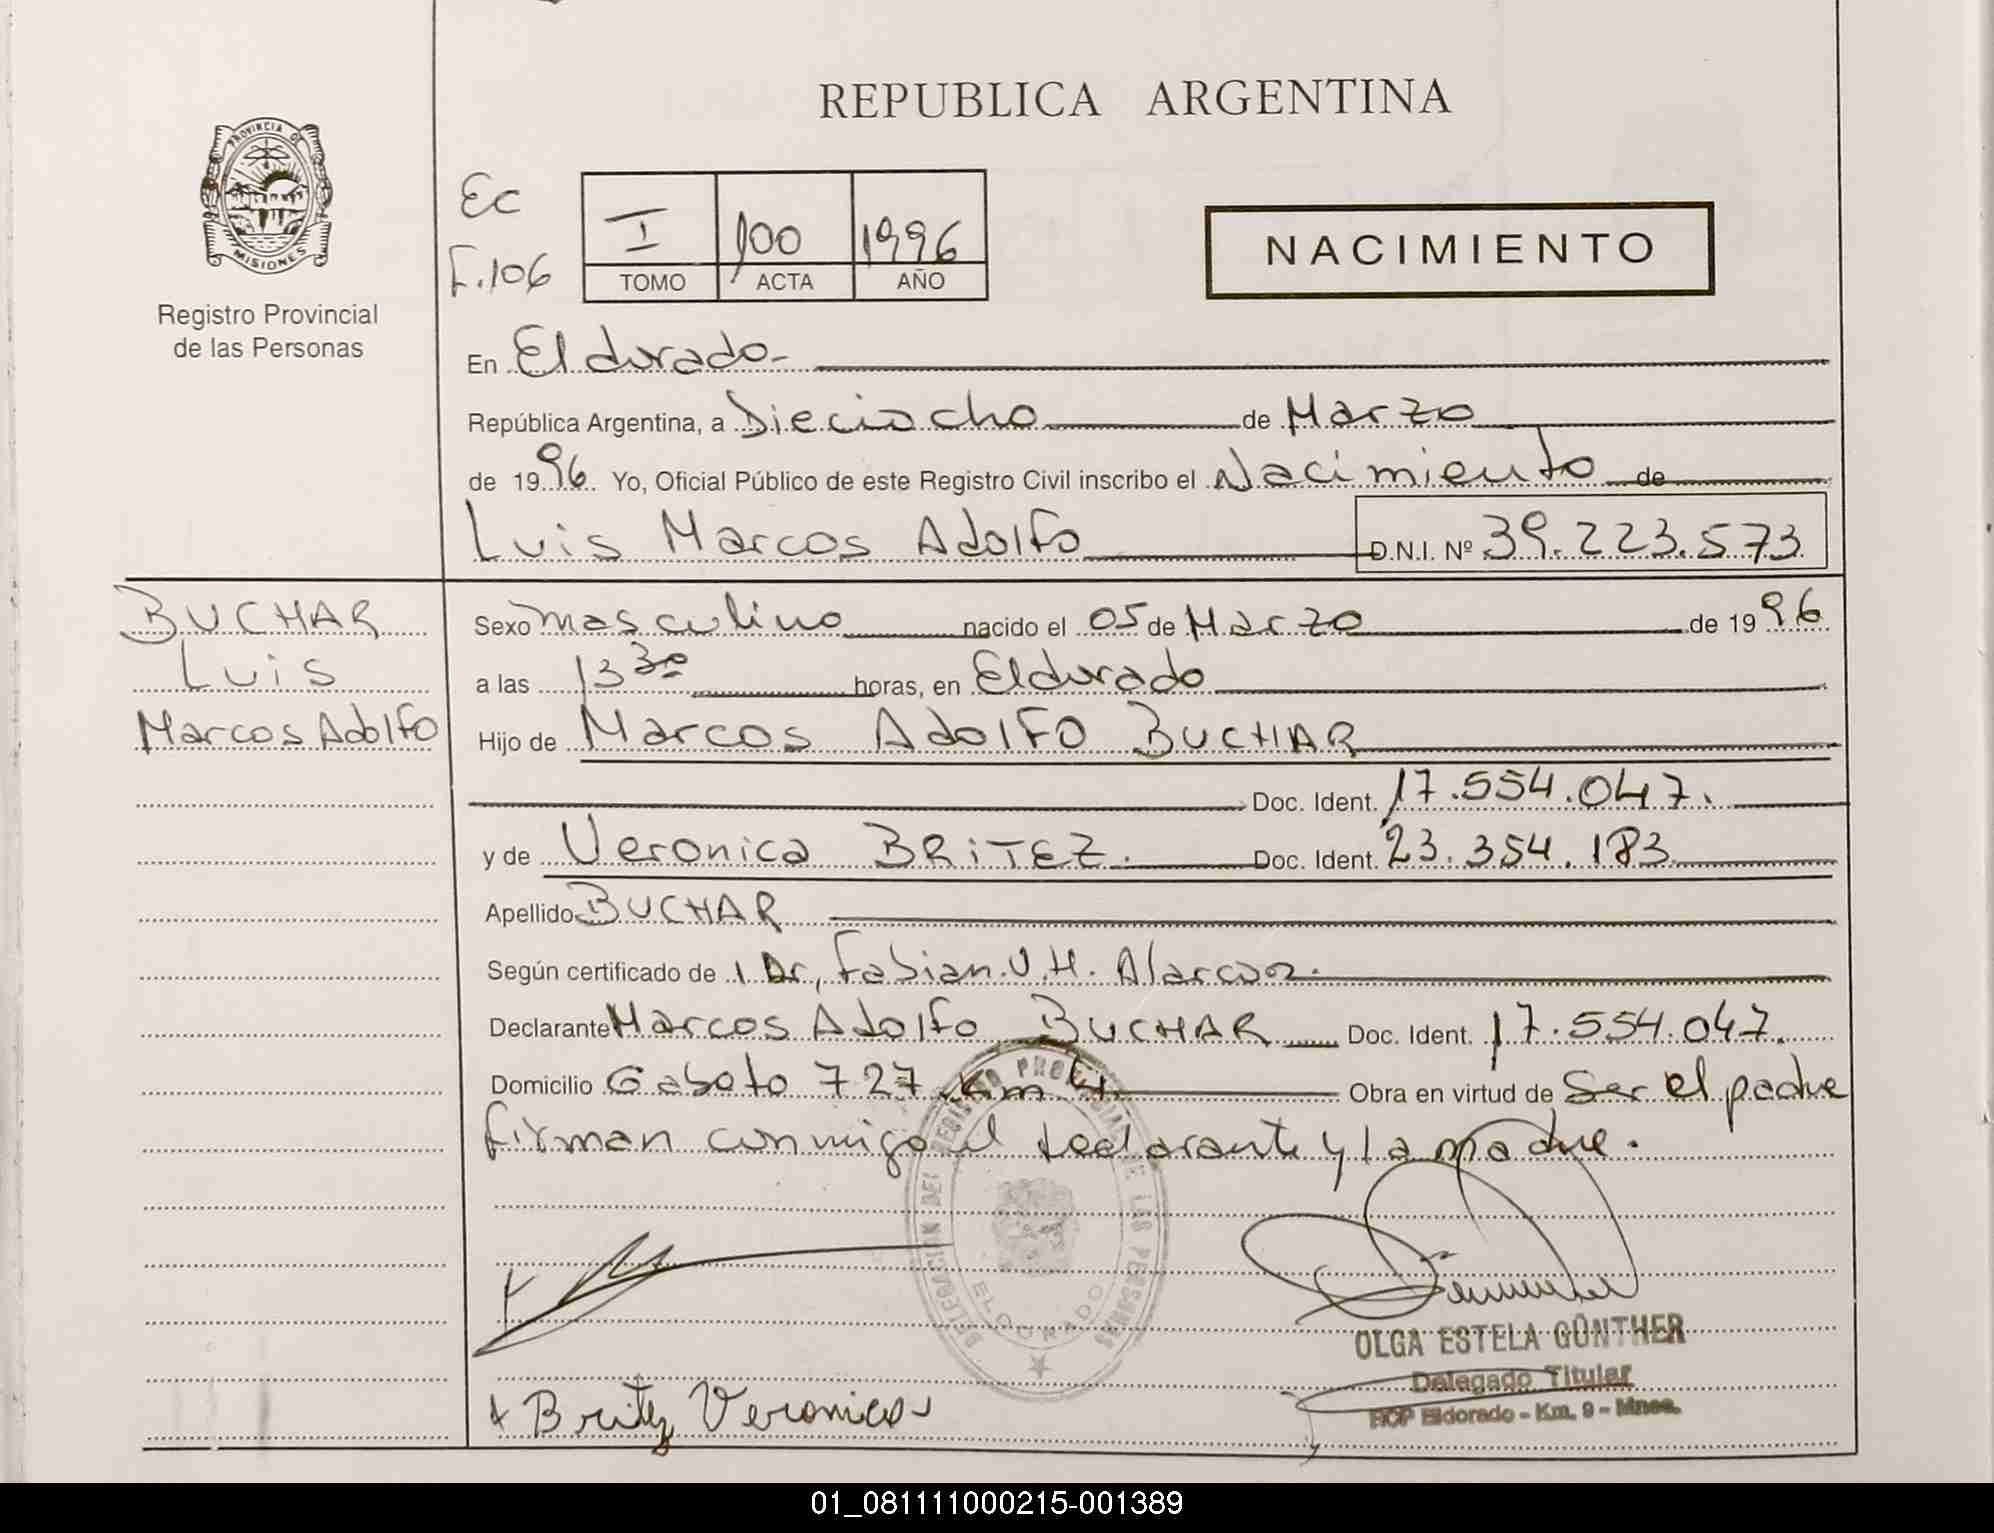 REPUBLICA ARGENTINA
PROVINCIA DE MISIONES
Registro Provincial
de las Personas
Ec
F.106
I 100 1996
TOMO ACTA AÑO
NACIMIENTO
En Eldorado-
República Argentina, a Dieciocho de Marzo
de 1996 Yo, Oficial Público de este Registro Civil inscribo el Nacimiento de
Luis Marcos Adolfo D.N.I. Nº 39.223.573
BUCHAR
Luis
Marcos Adolfo
Sexo masculino nacido el 05 de Marzo de 1996
a las 13 30 horas, en Eldorado
Hijo de Marcos Adolfo BUCHAR
Doc. Ident. 17.554.047.
y de Veronica BRiTEZ. Doc. Ident. 23.354.183
Apellido BUCHAR
Según certificado de Dr, Fabian.V.H. Alarcon.
Declarante Marcos Adolfo BUCHAR Doc. Ident. 17.554.047.
Domicilio Gaboto 727 Km 4. Obra en virtud de Ser el padre
firman conmigo el declarante y la madre.
DELEGACION DEL REGISTRO PROVINCIAL DE LAS PERSONAS
ELDORADO
OLGA ESTELA GÜNTHER
Delegado Titular
RCP Eldorado - Km. 9 - Mnes.
Britez Veronica
01_081111000215-001389